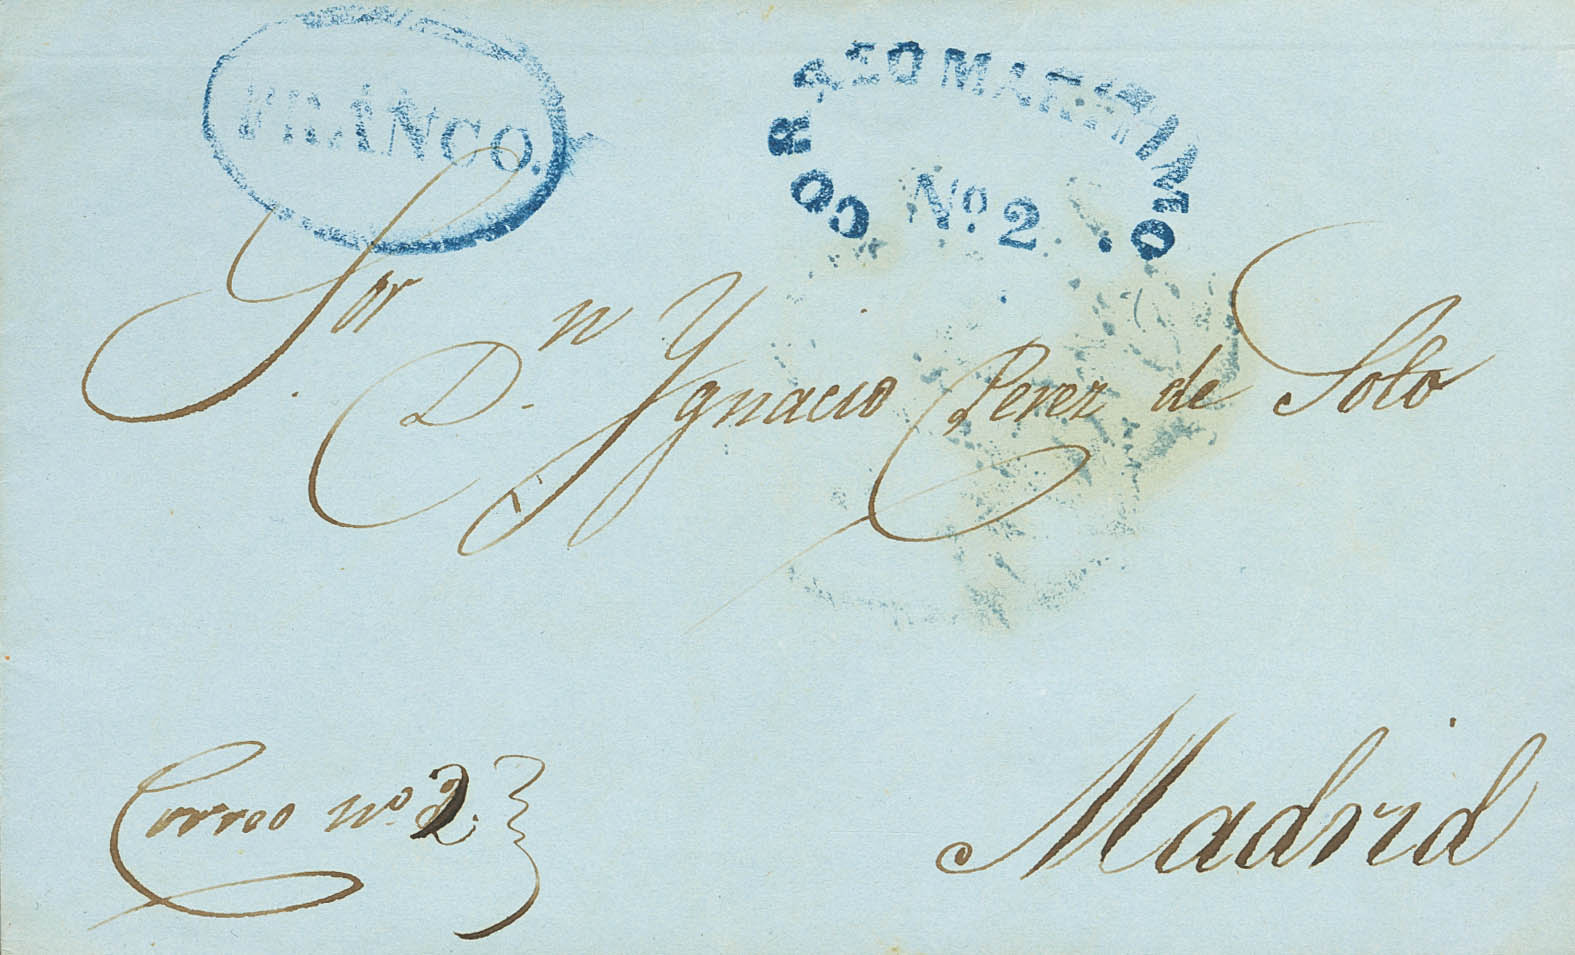 FRANCO.
CORREO MARITIMO
Nº 2
Sor
Dn. Ygnacio Perez de Soto
Correo nº 2.
Madrid